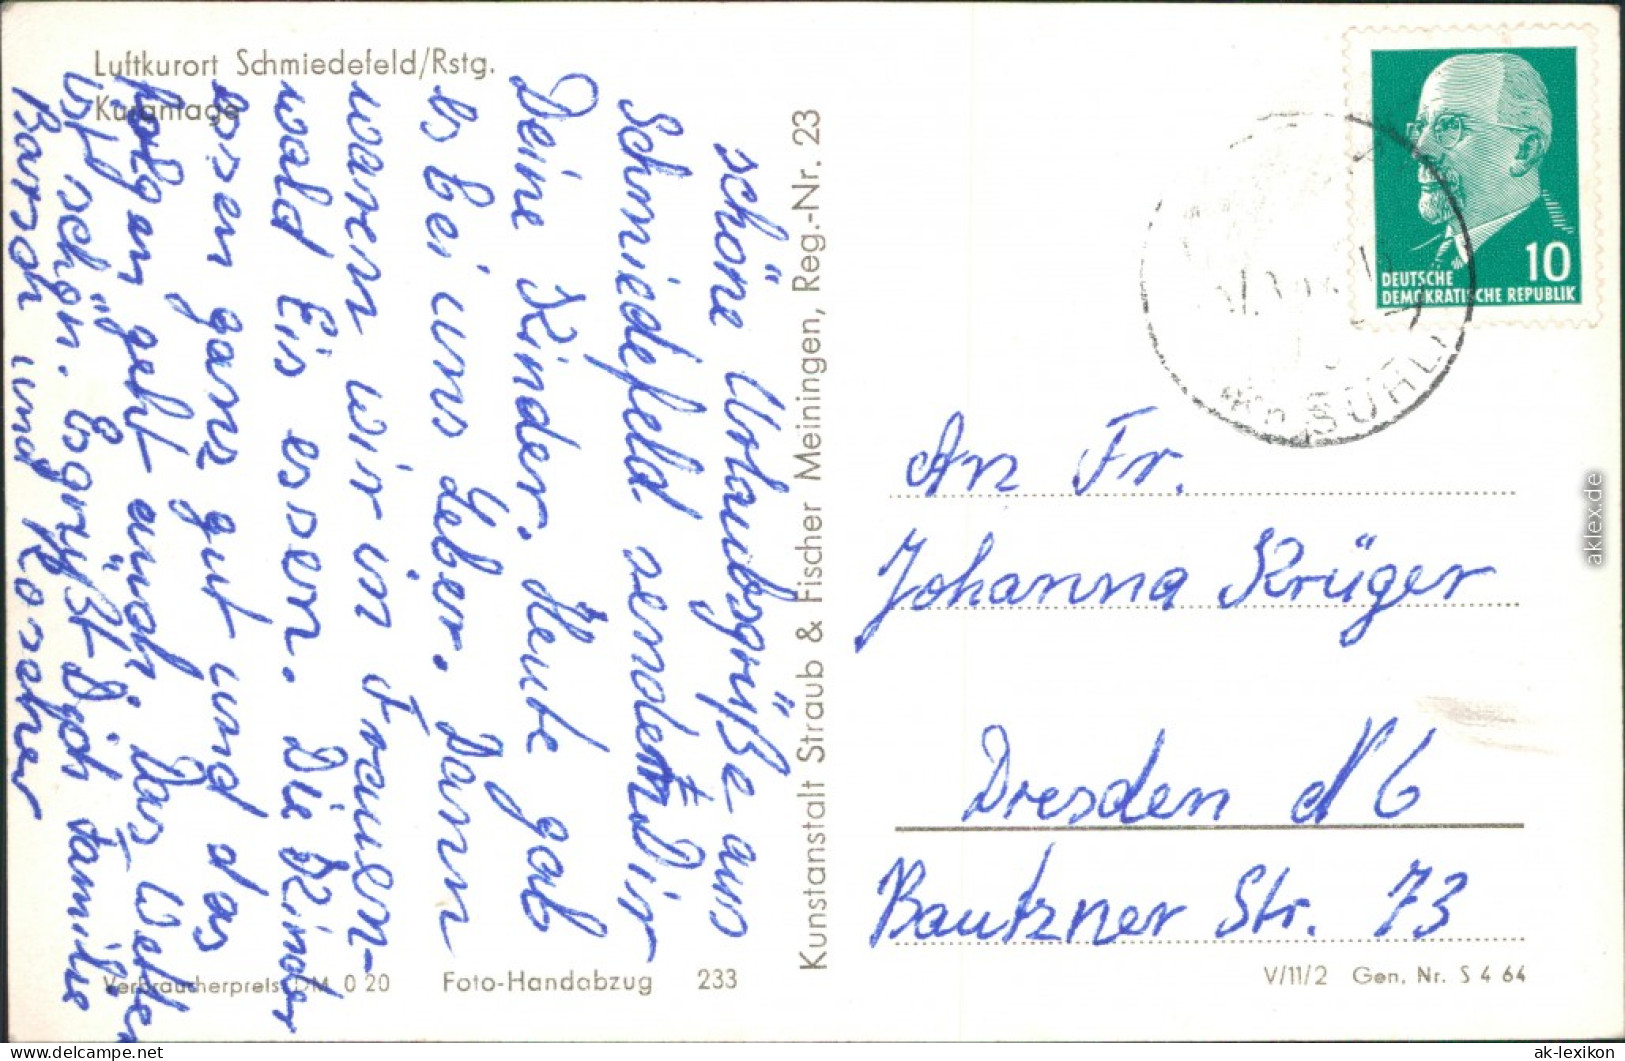 Luftkurort Schmiedefeld/Rstg.
Kuranlage
schöne Urlaubsgrüße aus
Schmiedefeld sendet Dir
Deine Kinder. Heute gab
es bei uns Leber. Dann
waren wir in Frauen-
wald Eis essen. Die Kinder
essen ganz gut und das
folgen geht auch. Das Wetter
ist schön. Es grüßt Dich Familie
und
Verbraucherpreis DM 0 20
Foto-Handabzug 233
Kunstanstalt Straub & Fischer Meiningen, Reg.-Nr. 23
10
DEUTSCHE
DEMOKRATISCHE REPUBLIK
SUHL
An Fr.
Johanna Krüger
Dresden N 6
Bautzner Str. 73
V/11/2 Gen. Nr. S 4 64
aklex.de
ak-lexikon